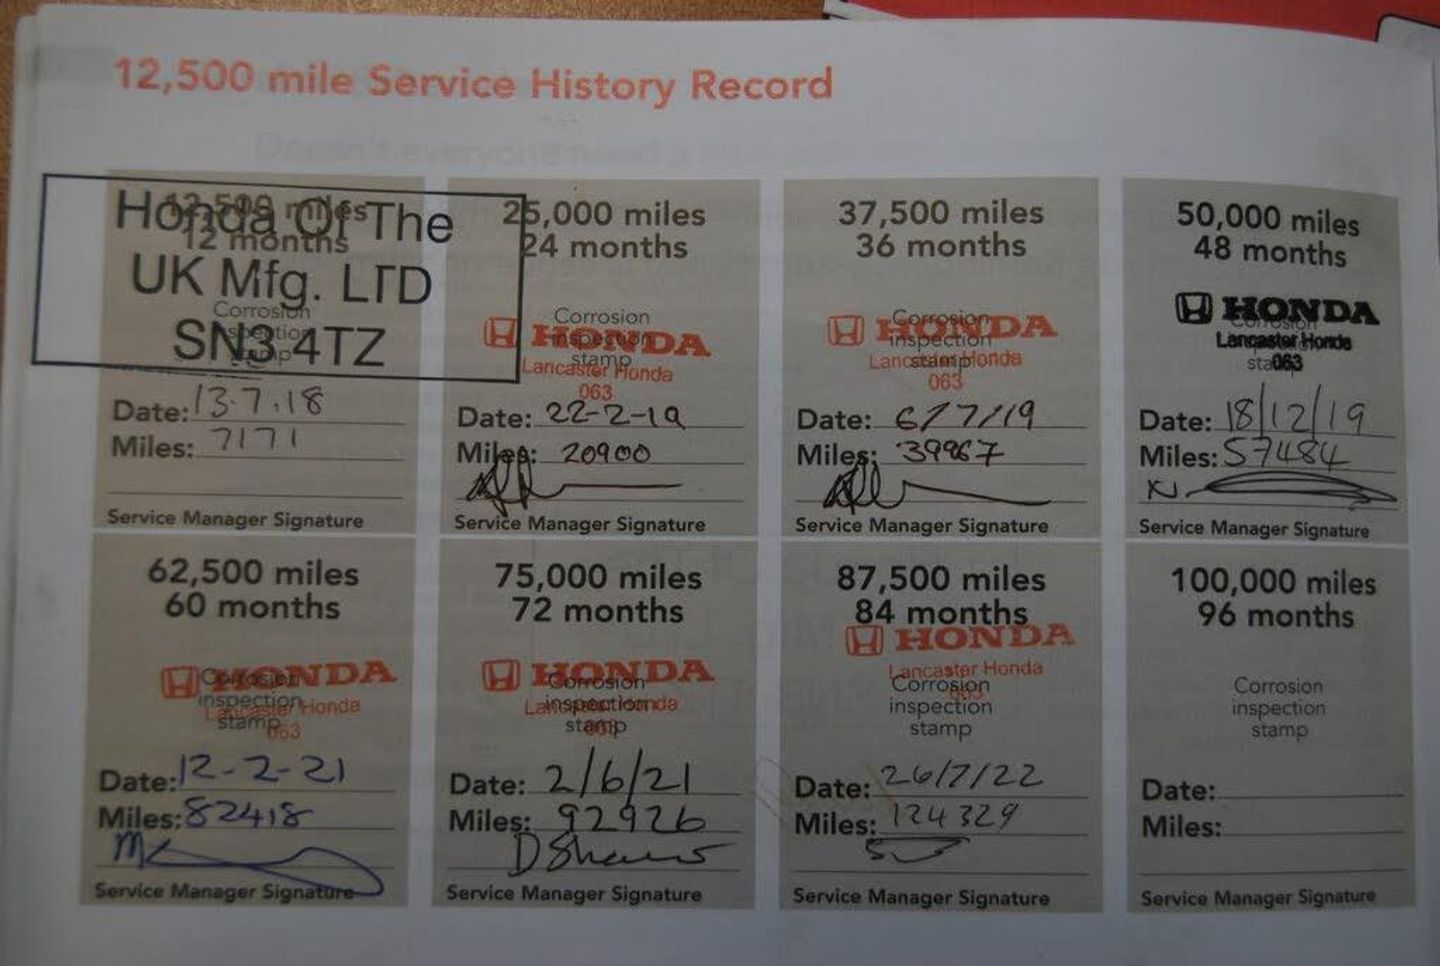 12,500 mile Service History Record
12,500 miles
12 months
Honda Of The
UK Mfg. LTD
SN3 4TZ
Corrosion
inspection
stamp
Date: 13.7.18
Miles: 7171
Service Manager Signature
25,000 miles
24 months
Corrosion
inspection
stamp
HONDA
Lancaster Honda
063
Date: 22-2-19
Miles: 20900
Service Manager Signature
37,500 miles
36 months
Corrosion
inspection
stamp
HONDA
Lancaster Honda
063
Date: 6/7/19
Miles: 39967
Service Manager Signature
50,000 miles
48 months
HONDA
Corrosion
Lancaster Honda
stamp
063
Date: 18/12/19
Miles: 57484
Service Manager Signature
62,500 miles
60 months
HONDA
Corrosion
inspection
Lancaster Honda
stamp
063
Date: 12-2-21
Miles: 82418
Service Manager Signature
75,000 miles
72 months
HONDA
Corrosion
inspection
Lancaster Honda
stamp
063
Date: 2/6/21
Miles: 92926
D Shaw
Service Manager Signature
87,500 miles
84 months
HONDA
Lancaster Honda
063
Corrosion
inspection
stamp
Date: 26/7/22
Miles: 124329
Service Manager Signature
100,000 miles
96 months
Corrosion
inspection
stamp
Date:
Miles:
Service Manager Signature